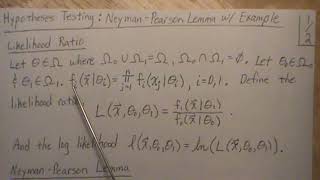 Hypotheses Testing: Neyman-Pearson Lemma w/ Example
1/2
Likelihood Ratio
Let Θ∈Ω where Ω₀∪Ω₁=Ω, Ω₀∩Ω₁=∅. Let Θ₀∈Ω₀
& Θ₁∈Ω₁. fᵢ(x⃗|Θᵢ)=∏ⁿⱼ₌₁ fᵢ(xⱼ|Θᵢ), i=0,1. Define the
likelihood ratio L(x⃗,Θ₀,Θ₁) = f₁(x⃗|Θ₁) / f₀(x⃗|Θ₀)
And the log likelihood l(x⃗,Θ₀,Θ₁)=ln(L(x⃗,Θ₀,Θ₁)).
Neyman-Pearson Lemma